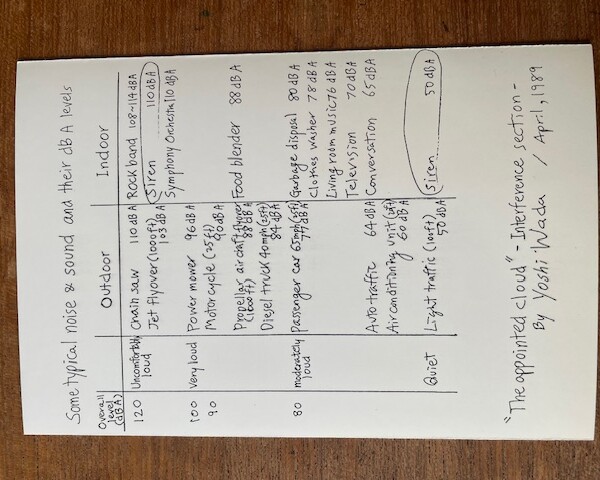 Some typical noise & sound and their dbA levels
Overall level (dBA) Outdoor Indoor
120 Uncomfortably loud Chain saw 110 dBA Rock band 108~114 dBA
Jet flyover (1000ft) 103 dBA Siren 110 dBA
Symphony Orchestra 110 dBA
100 Very loud Power mower 96 dBA
90 Motorcycle (25ft) 90 dBA
Propellar aircraft flyover (1000ft) 88 dBA Food blender 88 dBA
Diesel truck 40mph (50ft) 84 dBA
80 moderately loud Passenger car 65mph (25ft) 77 dBA Garbage disposal 80 dBA
Clothes washer 78 dBA
Living room music 76 dBA
Television 70 dBA
Auto traffic 64 dBA Conversation 65 dBA
Air conditioning unit 60 dBA
Quiet Light traffic (100ft) 50 dBA Siren 50 dBA
"The appointed cloud" - Interference section -
By Yoshi Wada / April, 1989